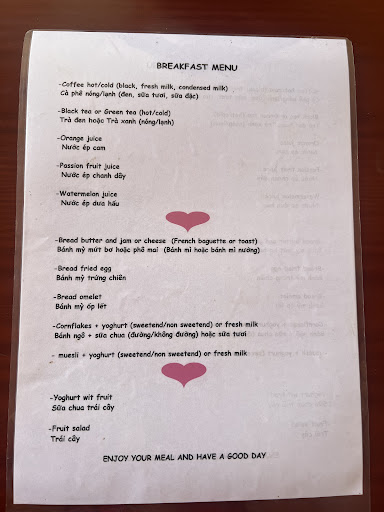 BREAKFAST MENU
-Coffee hot/cold (black, fresh milk, condensed milk)
Cà phê nóng/lạnh (đen, sữa tươi, sữa đặc)
-Black tea or Green tea (hot/cold)
Trà đen hoặc Trà xanh (nóng/lạnh)
-Orange juice
Nước ép cam
-Passion fruit juice
Nước ép chanh dây
-Watermelon juice
Nước ép dưa hấu
-Bread butter and jam or cheese (French baguette or toast)
Bánh mỳ mứt bơ hoặc phô mai (Bánh mì hoặc bánh mì nướng)
-Bread fried egg
Bánh mỳ trứng chiên
-Bread omelet
Bánh mỳ ốp lết
-Cornflakes + yoghurt (sweetend/non sweetend) or fresh milk
Bánh ngô + sữa chua (đường/không đường) hoặc sữa tươi
- muesli + yoghurt (sweetend/non sweetend) or fresh milk
-Yoghurt wit fruit
Sữa chua trái cây
-Fruit salad
Trái cây
ENJOY YOUR MEAL AND HAVE A GOOD DAY